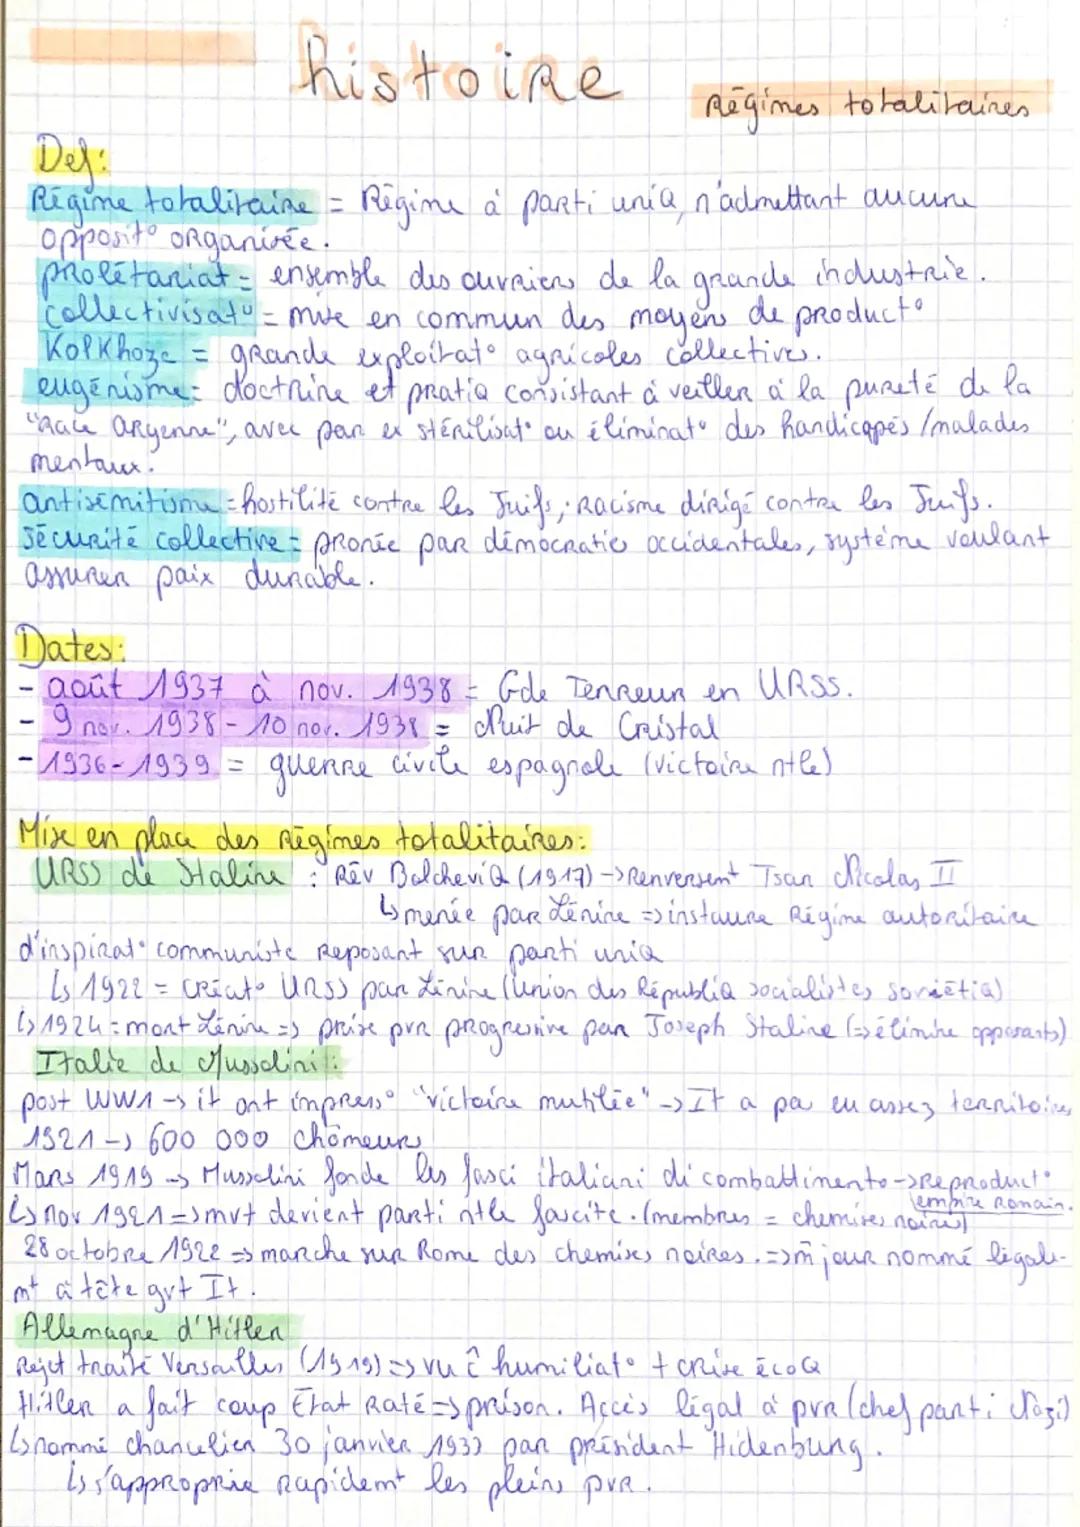 histoire
Régimes totalitaires
Def:
Régime totalitaire = Régime à parti uniQ, n'admettant aucune
opposit° organisée.
prolétariat = ensemble des ouvriers de la grande industrie.
collectivisat° = mise en commun des moyens de product°
Kolkhoze = grande exploitat° agricoles collectives.
eugénisme = doctrine et pratiQ consistant à veiller à la pureté de la
"Race Aryenne", avec par ex stérilisat° ou éliminat° des handicapés/malades
mentaux.
antisémitisme = hostilité contre les Juifs, racisme dirigé contre les Juifs.
Sécurité collective = pronée par démocraties occidentales, système voulant
assurer paix durable.
Dates:
- août 1937 à nov. 1938 = Gde Terreur en URSS.
- 9 nov. 1938 - 10 nov. 1938 = Nuit de Cristal
- 1936-1939 = guerre civile espagnole (victoire ntle)
Mise en place des régimes totalitaires:
URSS de Staline : Rév BolcheviQ (1917) -> Renversent Tsar Nicolas II
↳ menée par Lénine => instaure Régime autoritaire
d'inspirat° communiste reposant sur parti uniQ
↳ 1922 = créat° URSS par Lénine (Union des RépubliQ socialistes soviétiQ)
↳ 1924 = mort Lénine => prise pvr progressive par Joseph Staline (=> élimine opposants)
Italie de Mussolini :
post WW1 -> it ont impress° "victoire mutilée" -> It a pa eu assez territoires
1921 -> 600 000 chômeurs
Mars 1919 -> Mussolini fonde les fasci italiani di combattimento -> Reproduct°
empire Romain.
↳ nov 1921 => mvt devient parti ntle fasciste. (membres = chemises noires)
28 octobre 1922 => marche sur Rome des chemises noires. => m̂ jour nommé légale-
mt à tête gvt It.
Allemagne d'Hitler
Rejet traité Versailles (1919) => vu ĉ humiliat° + crise écoQ
Hitler a fait coup État Raté => prison. Accès légal à pvr (chef parti Nazi)
↳ nommé chancelier 30 janvier 1933 par président Hidenburg.
↳ s'approprie rapidemt les pleins pvr.